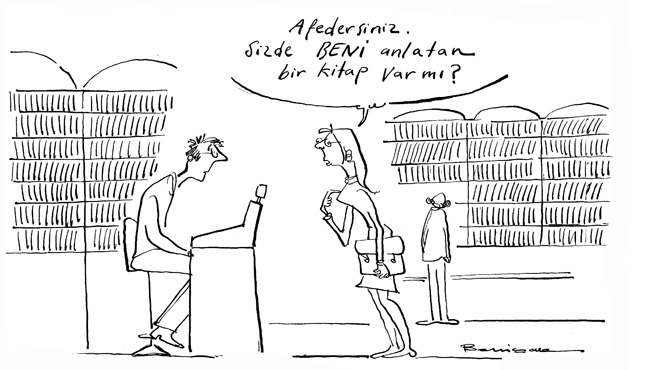 Afedersiniz.
Sizde BENİ anlatan
bir kitap var mı?